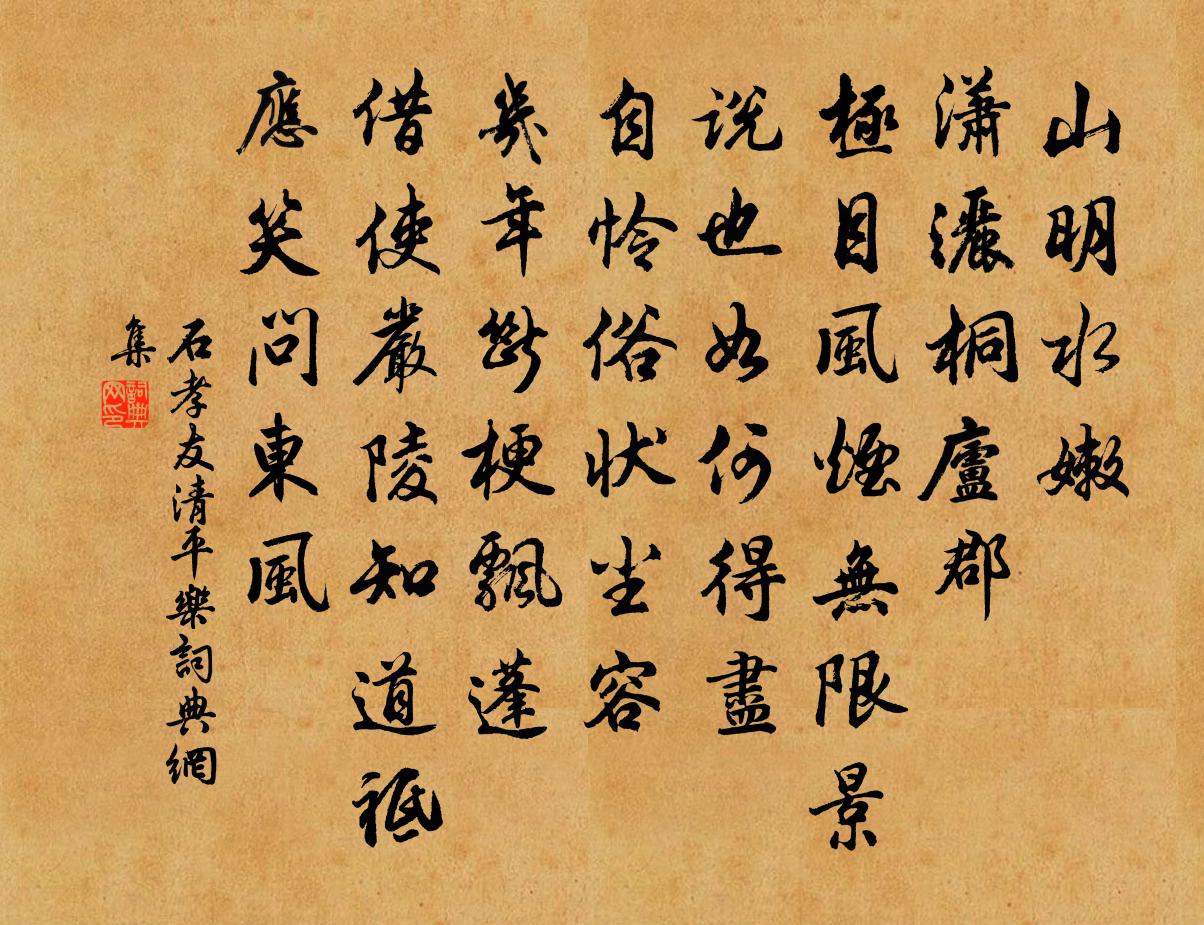 山明水嫩
瀟灑桐廬郡
極目風煙無限景
説也如何得盡
自怜俗状尘容
幾年斷梗飄蓬
借使嚴陵知道祗
應笑問東風
石孝友清平樂詞典網
集
詞典
网印